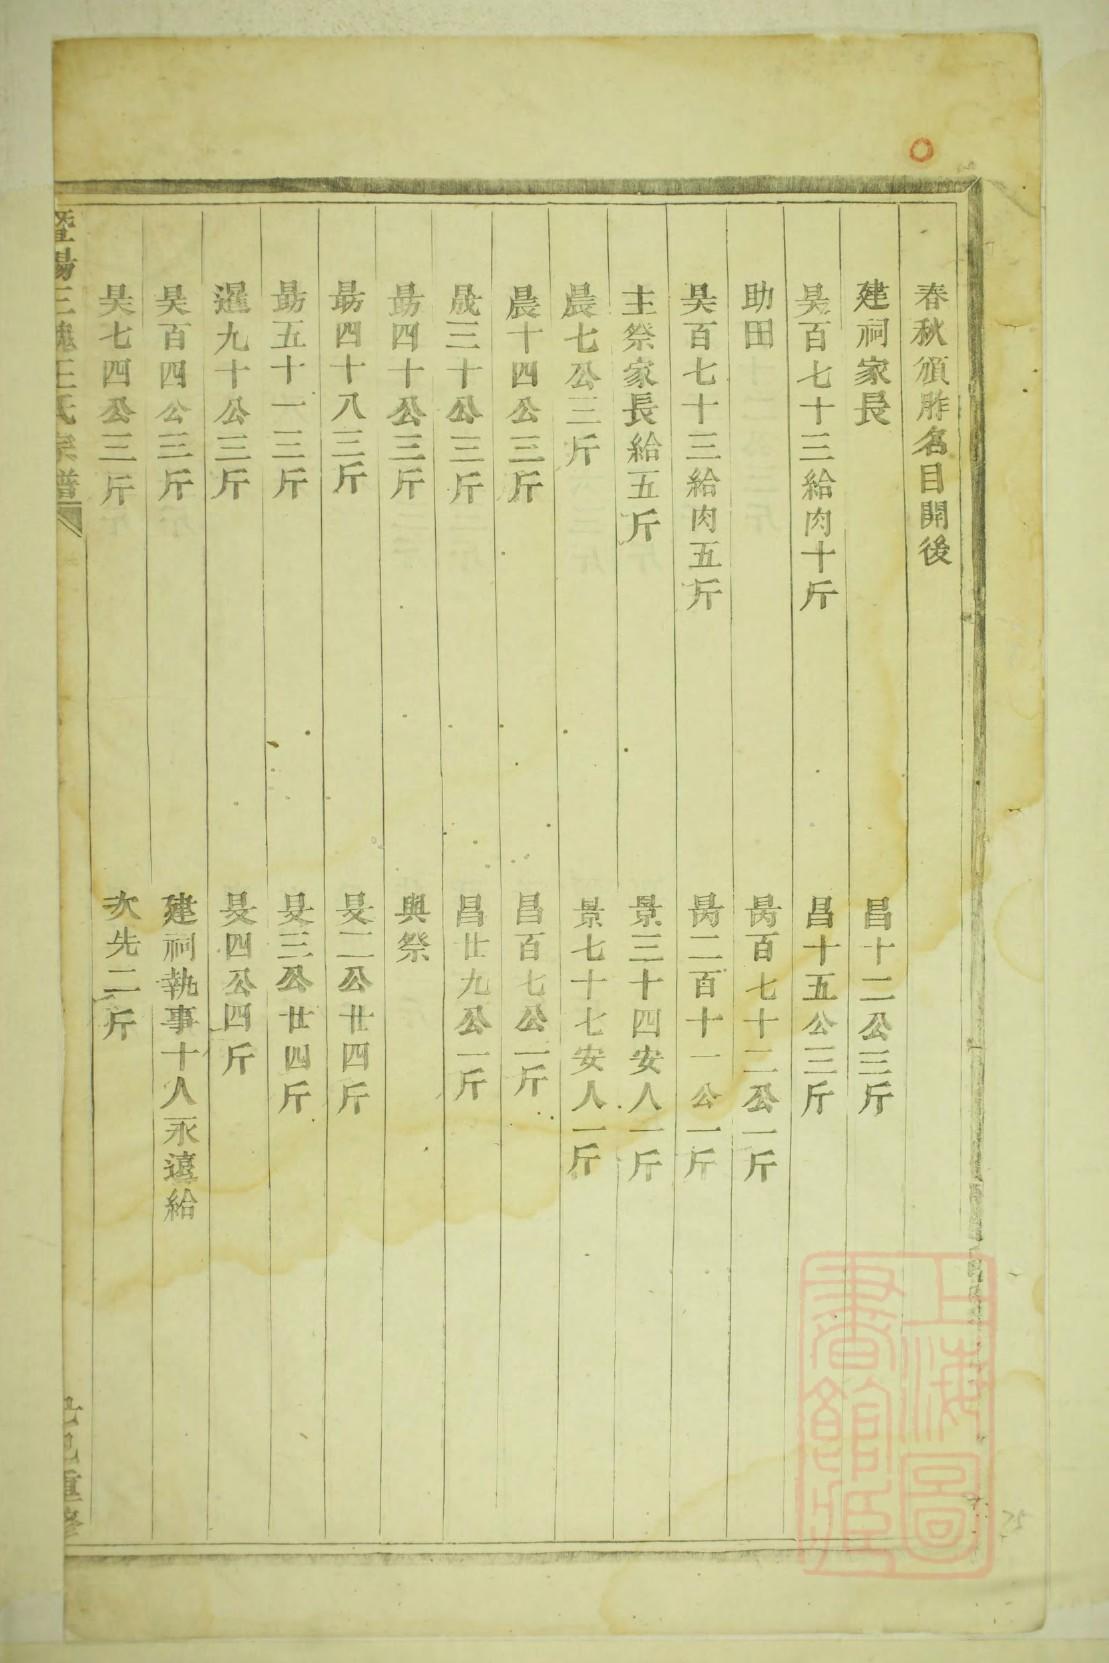 春秋頒胙名目開後
建祠家長
昊百七十三給肉十斤
助田
昊百七十三給肉五斤
主祭家長給五斤
晨七公三斤
晨十四公三斤
晟三十公三斤
勗四十公三斤
勗四十八三斤
勗五十一三斤
暹九十公三斤
昊百四公三斤
昊七四公三斤
昌十二公三斤
昌十五公三斤
昺百七十二公一斤
昺二百十一公一斤
景三十四安人一斤
景七十七安人一斤
昌百七公一斤
昌廿九公一斤
與祭
旻二公廿四斤
旻三公廿四斤
旻四公四斤
建祠執事十人永遠給
次先二斤
暨陽王氏宗譜
重修
上海圖書館藏